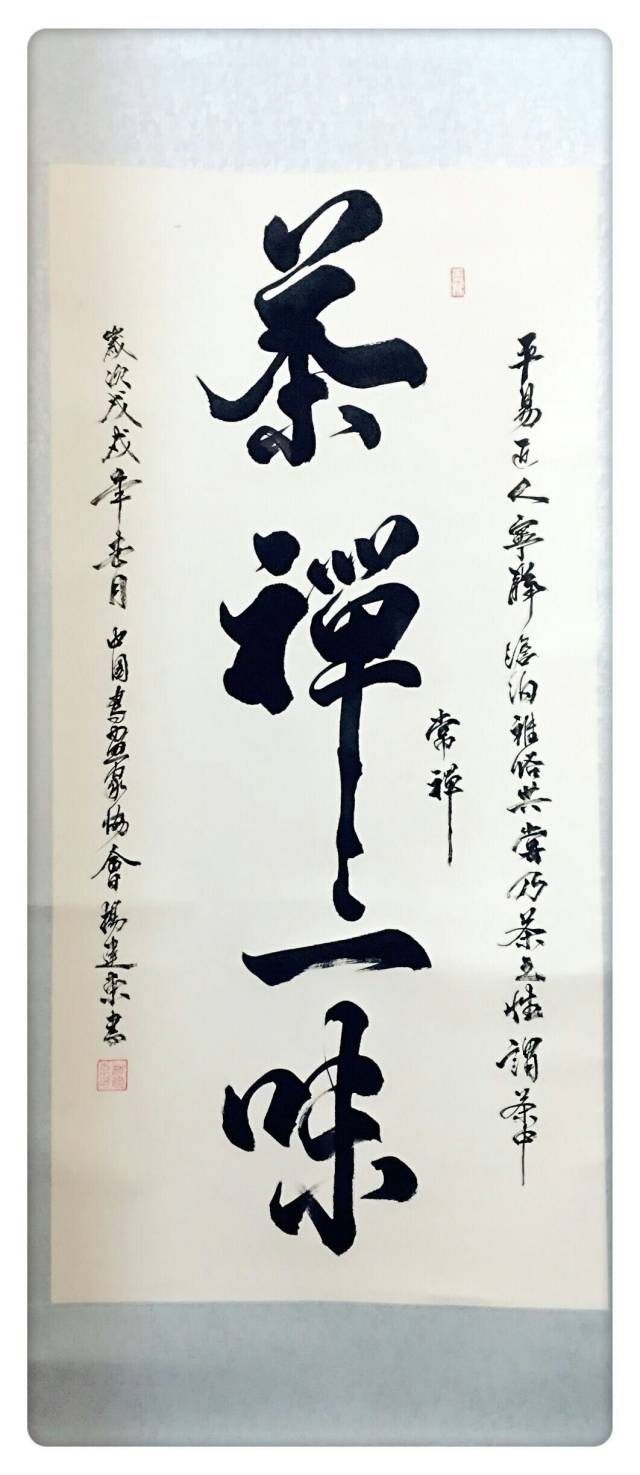 平易近人寧靜澹泊雅俗共賞乃茶之性謂茶中
常禪
茶禪一味
歲次戊戌年春月中国書畫家協會楊建書